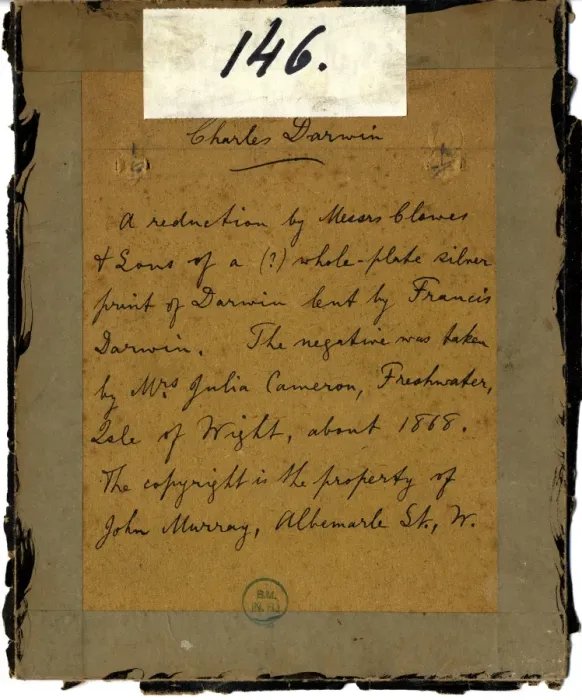 146.
Charles Darwin
A reduction by Messrs Clowes
& Sons of a (?) whole-plate silver
print of Darwin lent by Francis
Darwin. The negative was taken
by Mrs Julia Cameron, Freshwater,
Isle of Wight, about 1868.
The copyright is the property of
John Murray, Albemarle St., W.
B.M.
(N.H.)